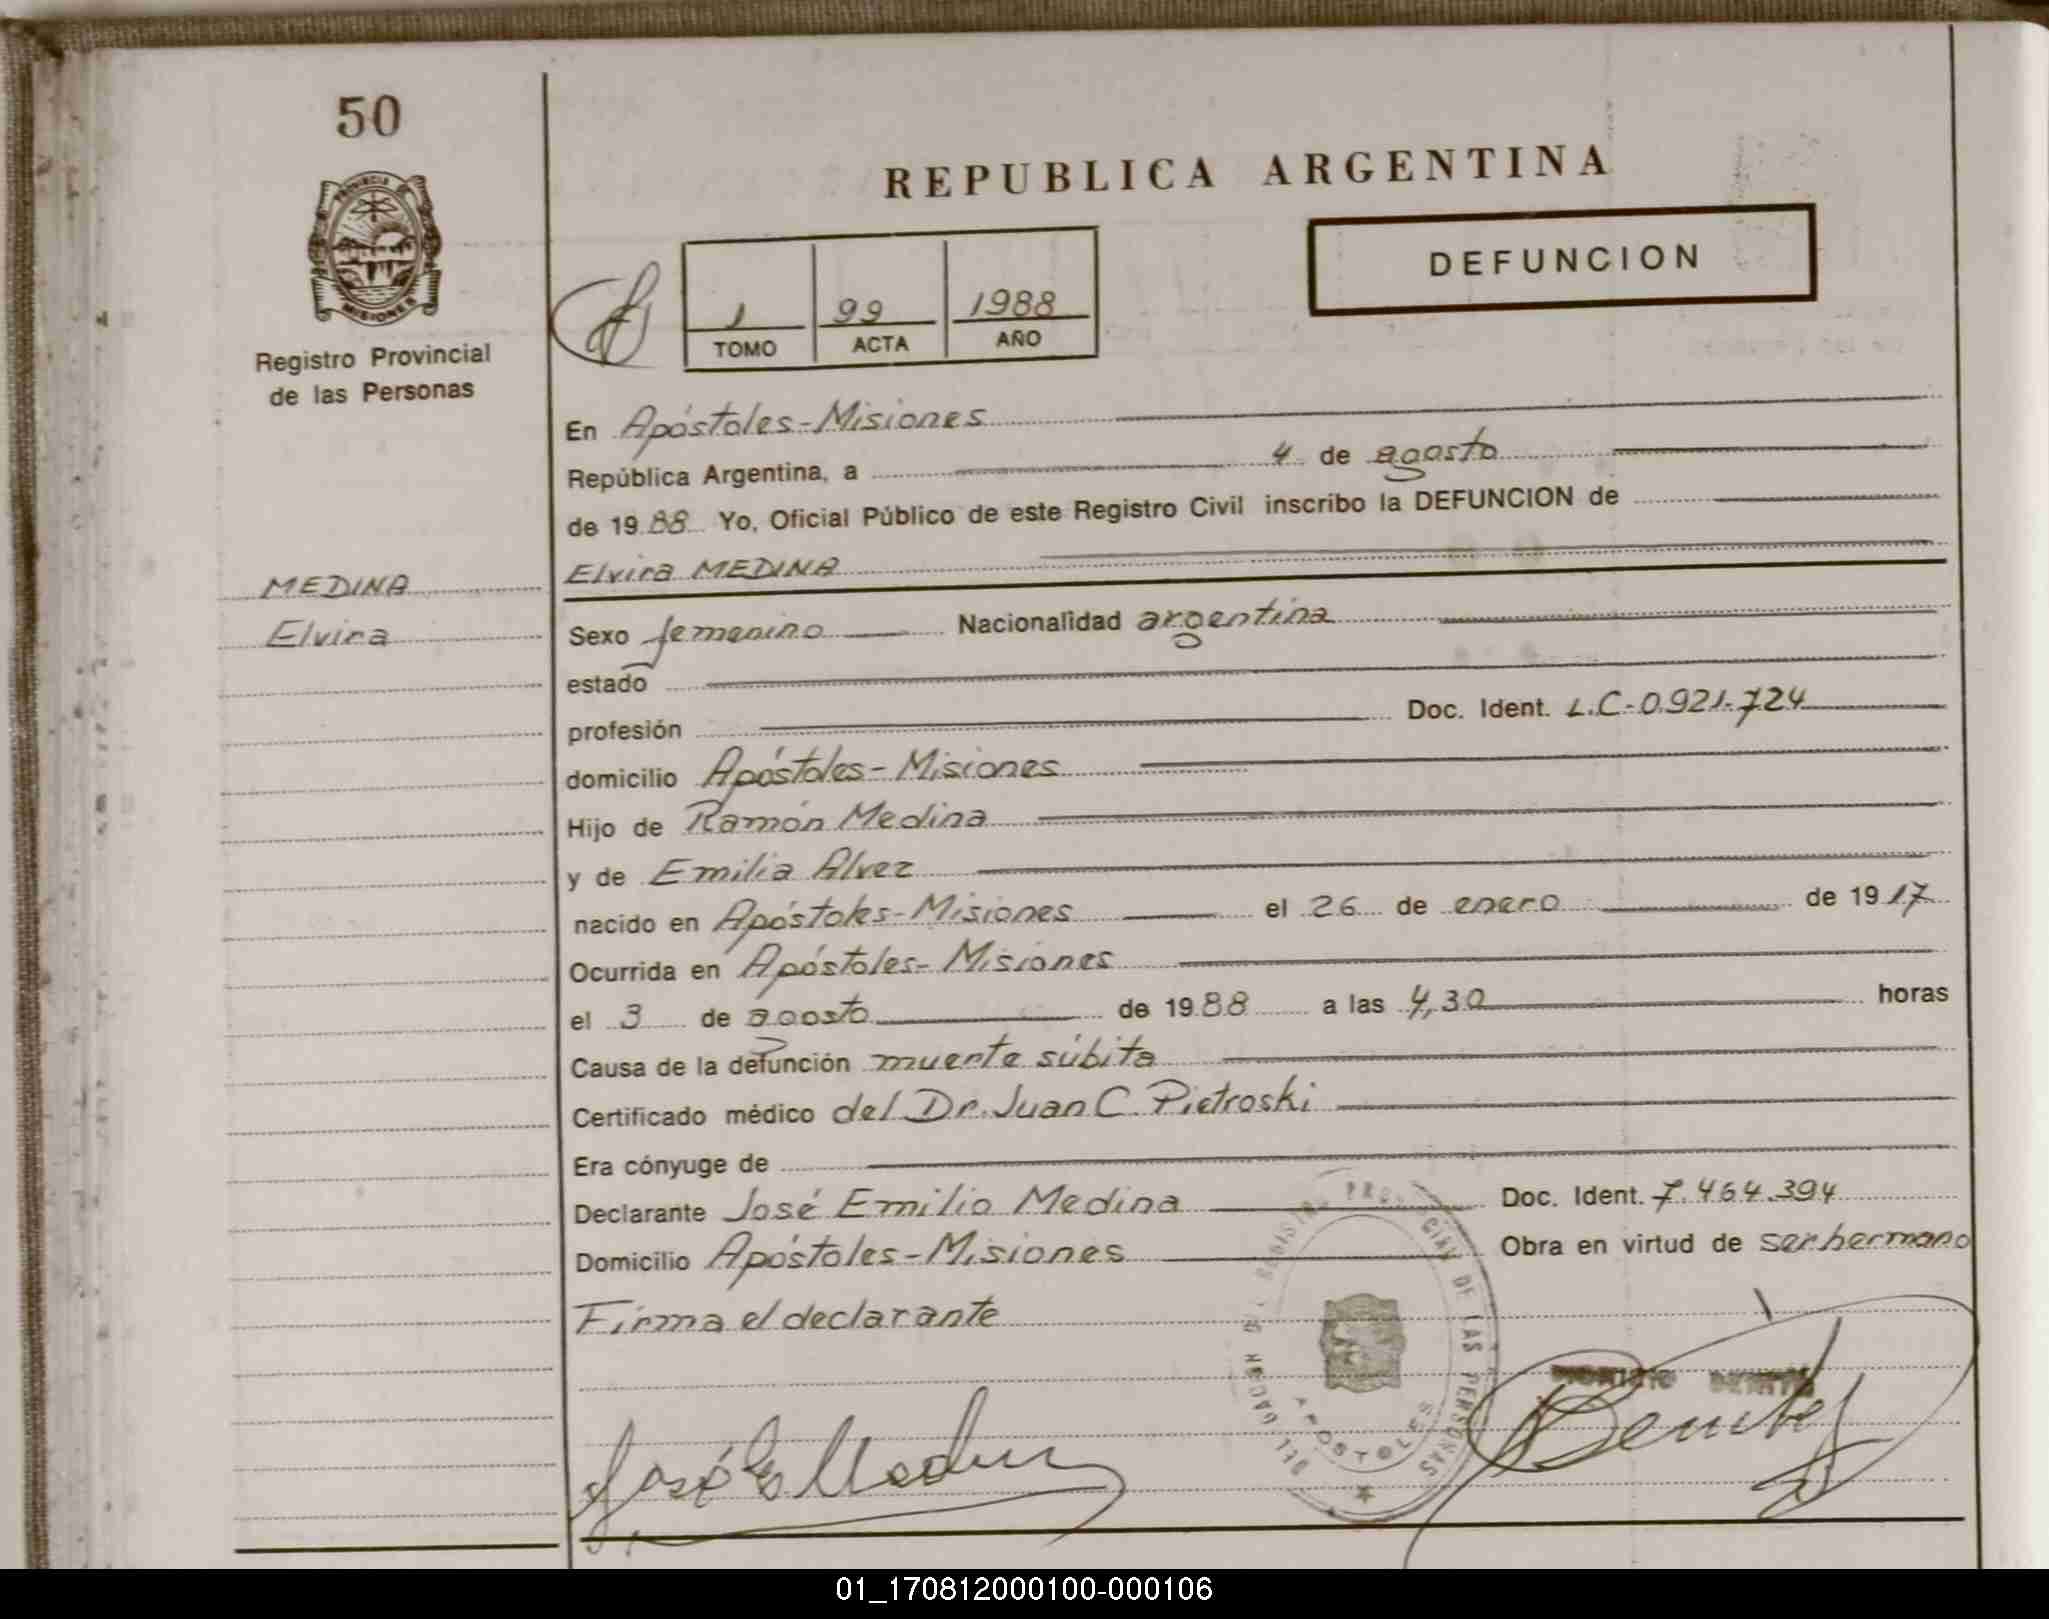 50
PROVINCIA DE
MISIONES
Registro Provincial
de las Personas
MEDINA
Elvira
REPUBLICA ARGENTINA
DEFUNCION
1 99 1988
TOMO ACTA AÑO
En Apóstoles-Misiones
República Argentina, a 4 de agosto
de 1988 Yo, Oficial Público de este Registro Civil inscribo la DEFUNCION de
Elvira MEDINA
Sexo femenino Nacionalidad argentina
estado
profesión Doc. Ident. L.C-0.921.724
domicilio Apóstoles-Misiones
Hijo de Ramón Medina
y de Emilia Alvez
nacido en Apóstoles-Misiones el 26 de enero de 1917
Ocurrida en Apóstoles-Misiones
el 3 de agosto de 1988 a las 4,30 horas
Causa de la defunción muerte súbita
Certificado médico del Dr. Juan C. Pietroski
Era cónyuge de
Declarante José Emilio Medina Doc. Ident. 7.464.394
Domicilio Apóstoles-Misiones Obra en virtud de ser hermano
Firma el declarante
PROVINCIAL DE LAS PERSONAS
APOSTOLES
José E Medina
Benitez
01_170812000100-000106